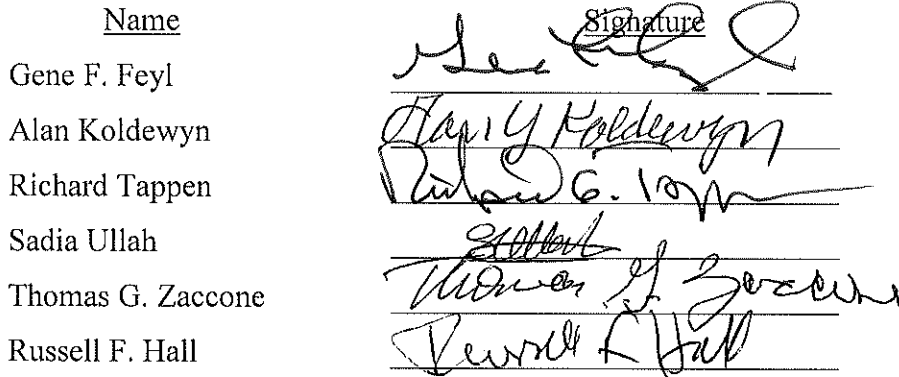 Name Signature
Gene F. Feyl Gene
Alan Koldewyn Alan Y Koldewyn
Richard Tappen Richard G. Tappen
Sadia Ullah
Thomas G. Zaccone Thomas G. Zaccone
Russell F. Hall Russell F. Hall